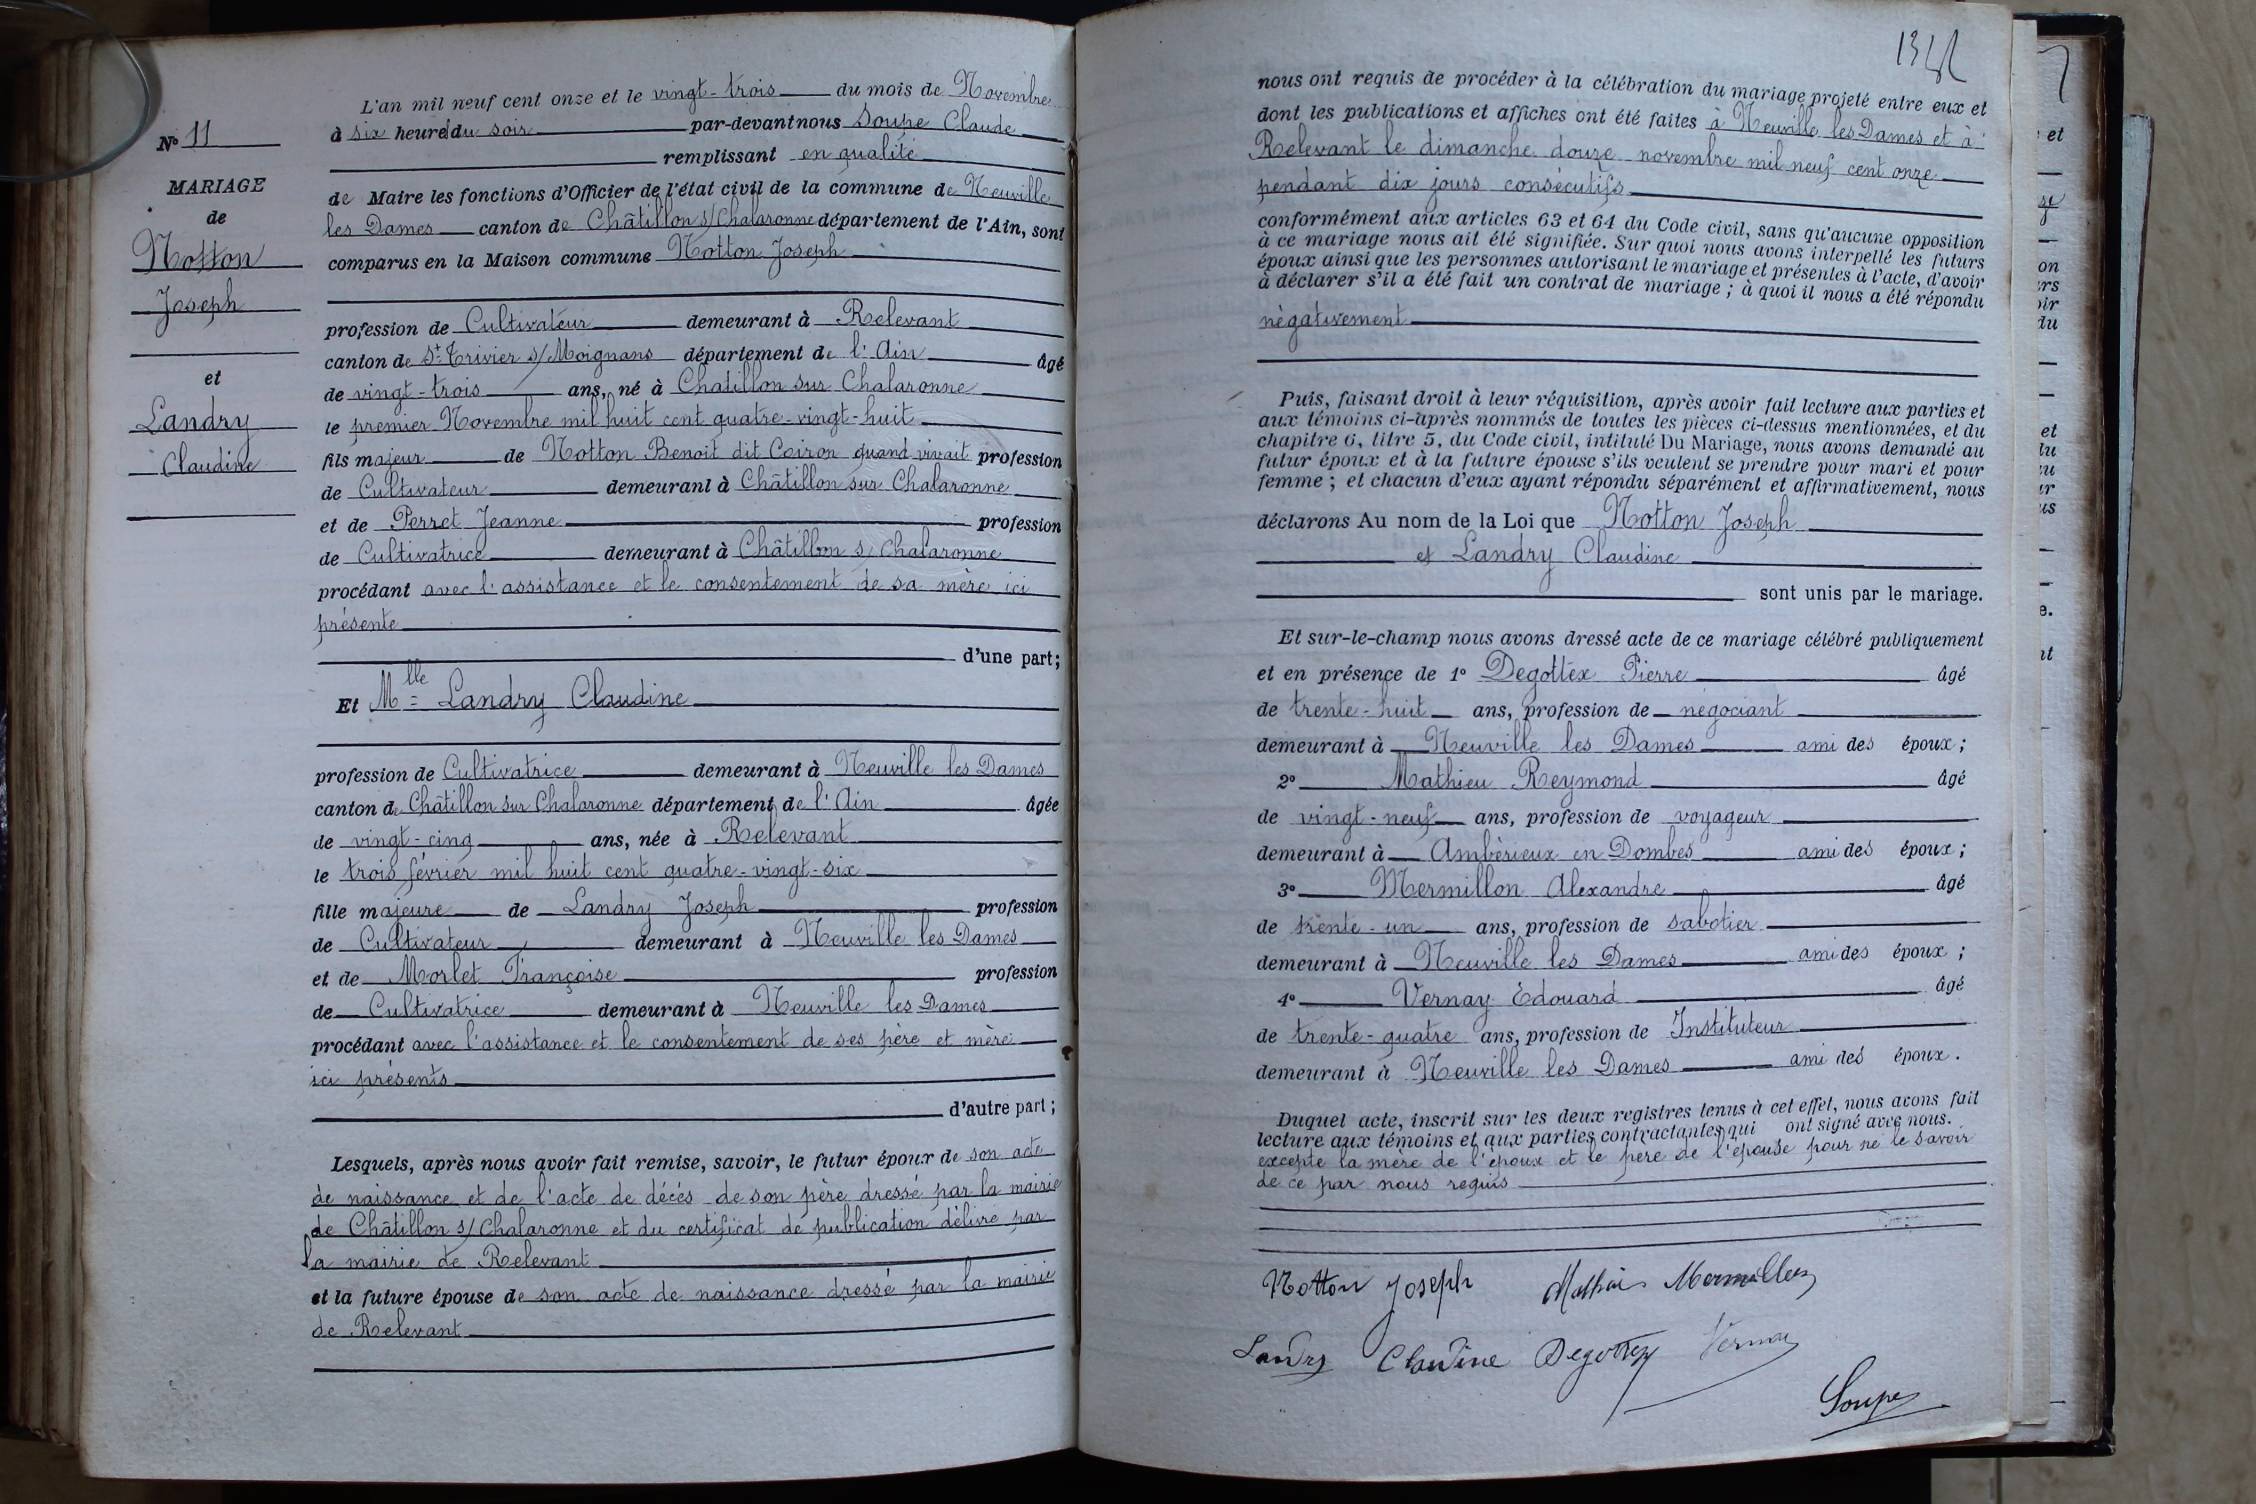 N° 11
MARIAGE
de
Notton
Joseph
et
Landry
Claudine
L'an mil neuf cent onze et le vingt-trois du mois de Novembre
à six heure du soir par-devant nous Soupe Claude
remplissant en qualité
de Maire les fonctions d'Officier de l'état civil de la commune de Neuville
les Dames canton de Châtillon s/ Chalaronne département de l'Ain, sont
comparus en la Maison commune Notton Joseph
profession de Cultivateur demeurant à Relevant
canton de St Trivier s/ Moignans département de l'Ain âgé
de vingt-trois ans, né à Chatillon sur Chalaronne
le premier Novembre mil huit cent quatre-vingt-huit
fils majeur de Notton Benoit dit Coiron quand vivait profession
de Cultivateur demeurant à Châtillon sur Chalaronne
et de Perret Jeanne profession
de Cultivatrice demeurant à Châtillon s/ Chalaronne
procédant avec l'assistance et le consentement de sa mère ici
présente
d'une part;
Et Mlle Landry Claudine
profession de Cultivatrice demeurant à Neuville les Dames
canton de Châtillon sur Chalaronne département de l'Ain âgée
de vingt-cinq ans, née à Relevant
le trois février mil huit cent quatre-vingt-six
fille majeure de Landry Joseph profession
de Cultivateur demeurant à Neuville les Dames
et de Morlet Françoise profession
de Cultivatrice demeurant à Neuville les Dames
procédant avec l'assistance et le consentement de ses père et mère
ici présents
d'autre part;
Lesquels, après nous avoir fait remise, savoir, le futur époux de son acte
de naissance et de l'acte de décès de son père dressé par la mairie
de Châtillon s/ Chalaronne et du certificat de publication délivré par
la mairie de Relevant
et la future épouse de son acte de naissance dressé par la mairie
de Relevant
nous ont requis de procéder à la célébration du mariage projeté entre eux et
dont les publications et affiches ont été faites à Neuville les Dames et à
Relevant le dimanche douze novembre mil neuf cent onze
pendant dix jours consécutifs
conformément aux articles 63 et 64 du Code civil, sans qu'aucune opposition
à ce mariage nous ait été signifiée. Sur quoi nous avons interpellé les futurs
époux ainsi que les personnes autorisant le mariage et présentes à l'acte, d'avoir
à déclarer s'il a été fait un contrat de mariage; à quoi il nous a été répondu
négativement
Puis, faisant droit à leur réquisition, après avoir fait lecture aux parties et
aux témoins ci-après nommés de toutes les pièces ci-dessus mentionnées, et du
chapitre 6, titre 5, du Code civil, intitulé Du Mariage, nous avons demandé au
futur époux et à la future épouse s'ils veulent se prendre pour mari et pour
femme; et chacun d'eux ayant répondu séparément et affirmativement, nous
déclarons Au nom de la Loi que Notton Joseph
et Landry Claudine
sont unis par le mariage.
Et sur-le-champ nous avons dressé acte de ce mariage célébré publiquement
et en présence de 1° Degottex Pierre âgé
de trente-huit ans, profession de négociant
demeurant à Neuville les Dames ami des époux;
2° Mathieu Reymond âgé
de vingt-neuf ans, profession de voyageur
demeurant à Ambérieux en Dombes ami des époux;
3° Mermillon Alexandre âgé
de trente-un ans, profession de sabotier
demeurant à Neuville les Dames ami des époux;
4° Vernay Édouard âgé
de trente-quatre ans, profession de Instituteur
demeurant à Neuville les Dames ami des époux.
Duquel acte, inscrit sur les deux registres tenus à cet effet, nous avons fait
lecture aux témoins et aux parties contractantes qui ont signé avec nous.
excepté la mère de l'époux et le père de l'épouse pour ne le savoir
de ce par nous requis
Notton Joseph Mathieu Mermillon
Landry Claudine Degottex Vernay
Soupe